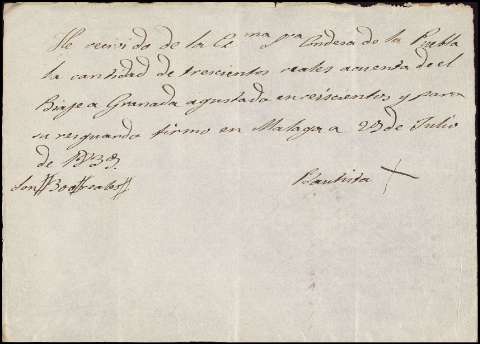 He recivido de la Ce ma Sra Condesa de la Puebla
la cantidad de trescientos reales acuenta de el
Biaje a Granada agustado en reiscientos y para
su resguardo firmo en Malaga a 29 de Julio
de 1839.
Son 300 reales Bautista